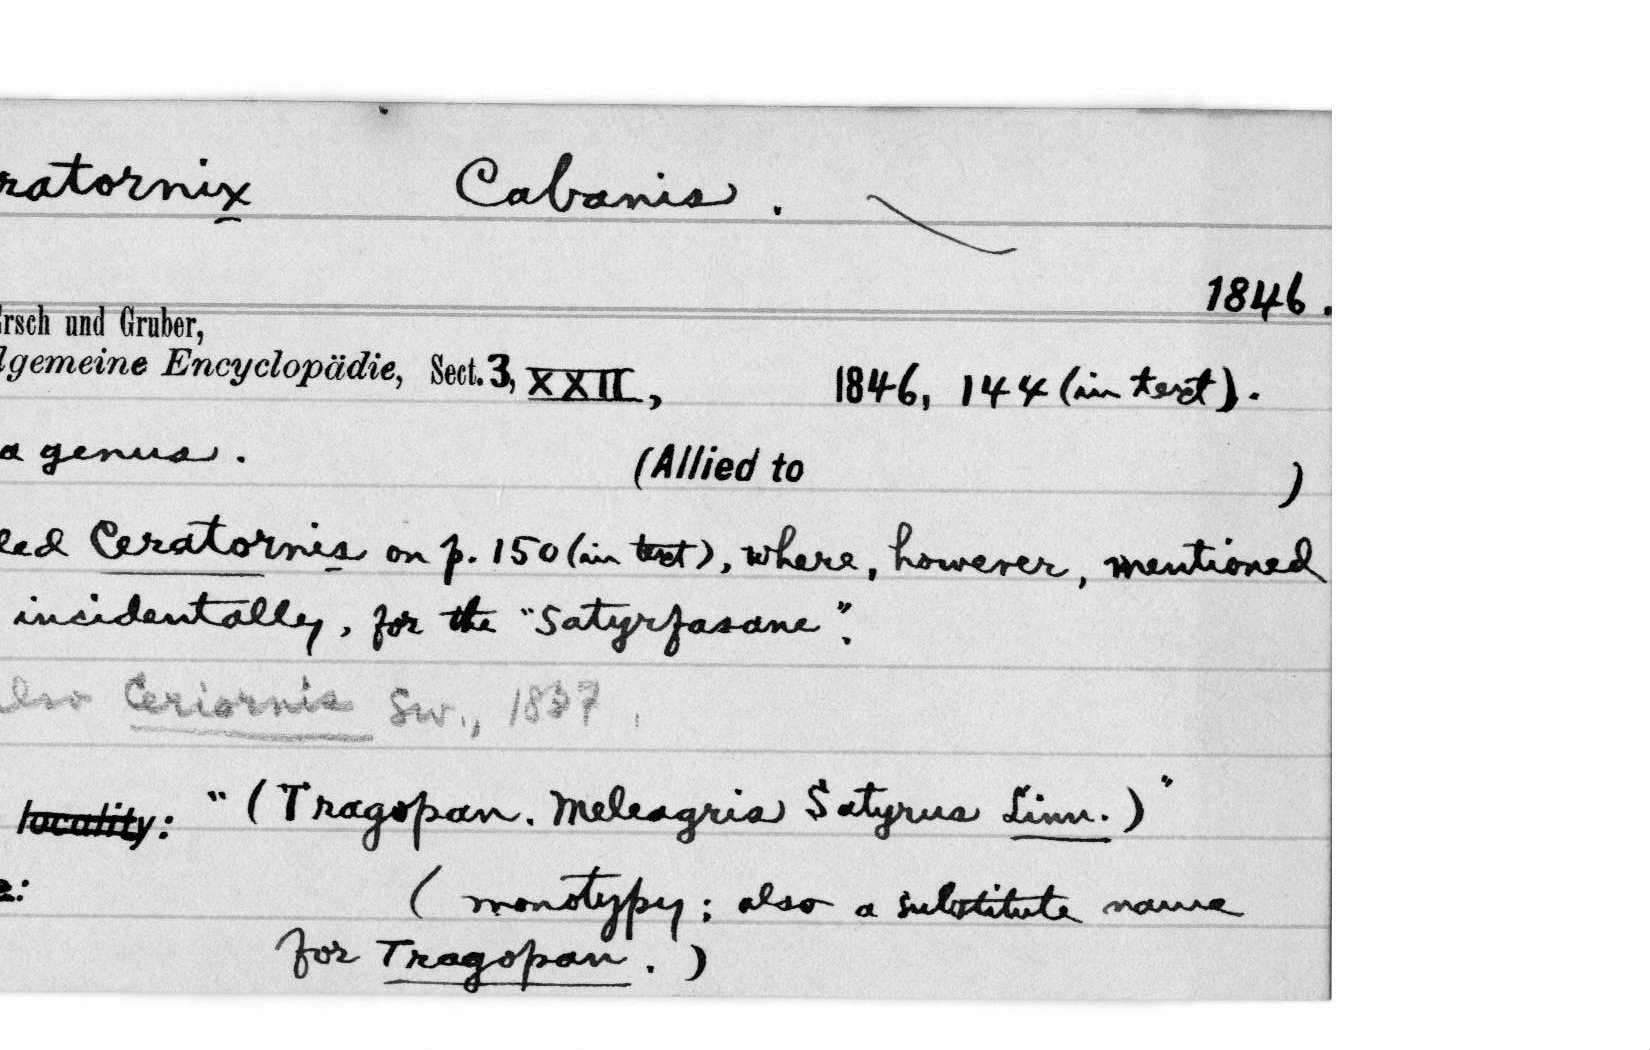 ratornix Cabanis.
1846.
Ersch und Gruber,
lgemeine Encyclopädie, Sect. 3, XXII, 1846, 144 (in text).
a genus. (Allied to )
led Ceratornis on p. 150 (in text), where, however, mentioned
incidentally, for the "Satyrfasane".
also Ceriornis Sw., 1837.
locality: "(Tragopan. Meleagris Satyrus Linn.)"
e: (monotypy; also a substitute name
for Tragopan.)